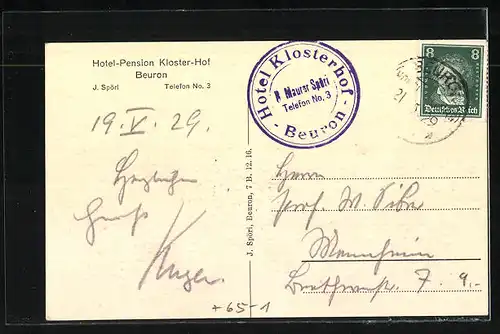 Hotel-Pension Kloster-Hof
Beuron
J. Spöri Telefon No. 3
19. V. 29.
Herzlichen
Gruß
J. Spöri, Beuron, 7 B. 12. 16.
Hotel Klosterhof
Maurer Spöri
Telefon No. 3
- Beuron -
8 8
Deutsches Reich
Herrn
Prof. W.
Mannheim
7. 9.-
+65-1